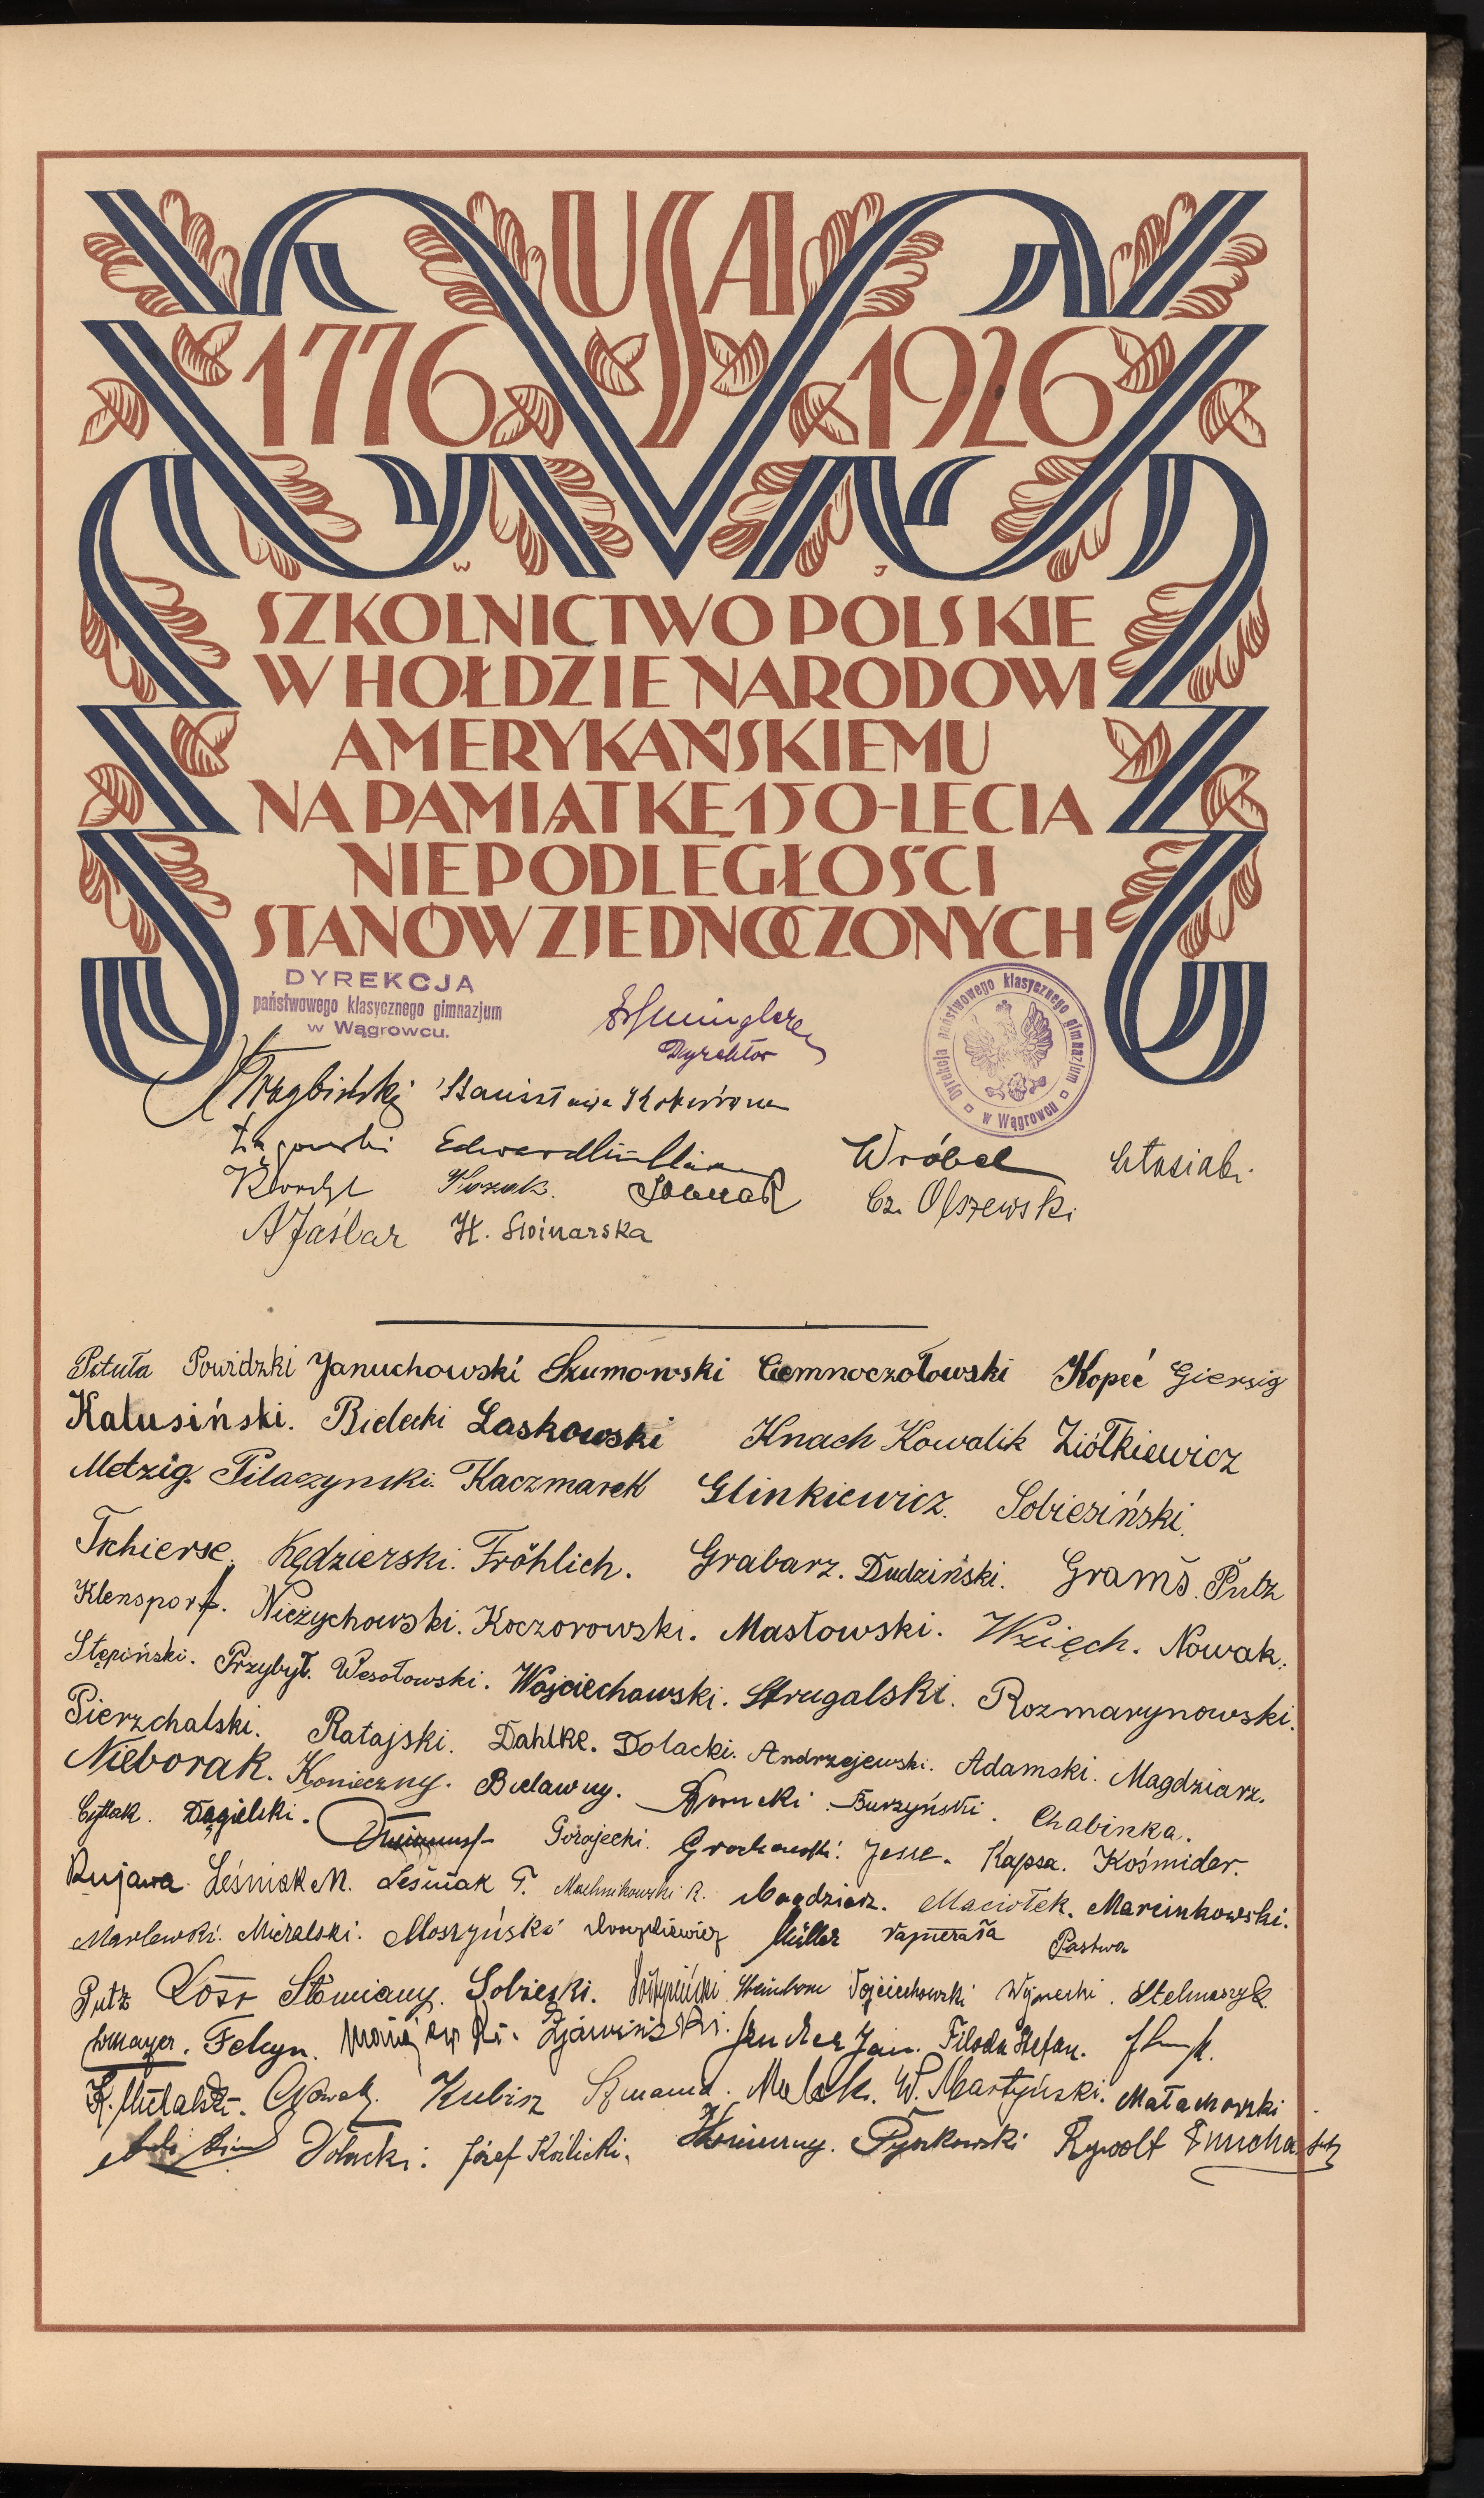 USA
1776 1926
SZKOLNICTWO POLSKIE
W HOŁDZIE NARODOWI
AMERYKAŃSKIEMU
NA PAMIĄTKĘ 150-LECIA
NIEPODLEGŁOŚCI
STANÓW ZJEDNOCZONYCH
DYREKCJA
państwowego klasycznego gimnazjum
w Wągrowcu.
Dyrektor
Dyrekcja państwowego klasycznego gimnazjum w Wągrowcu
Stanisława
Edward Wróbel
Kozak. Cz. Olszewski
A Jaślar H. Swinarska
Pituła Powidzki Januchowski Szumowski Ciemnoczołowski Kopeć Giersig
Kalusiński. Bielecki Laskowski Knach Kowalik Ziółkiewicz
Metzig. Pilaczynski. Kaczmarek Glinkiewicz. Sobiesiński.
Tschierse. Kędzierski. Fröhlich. Grabarz. Dudziński. Grams. Putz
Klensporf. Nieżychowski. Koczorowski. Masłowski. Wzięch. Nowak.
Stępiński. Przybył. Wesołowski. Wojciechowski. Strugalski. Rozmarynowski.
Pierzchalski. Ratajski. Dahlke. Dolacki. Andrzejewski. Adamski. Magdziarz.
Nieborak. Konieczny. Bielawny. Burzyński. Chabinka.
Cytlak. Dągielski. Gorajecki. Grochowski. Jesse. Kapsa. Kośmider.
Kujawa Leśniak M. Leśniak T. Machnikowski R. Magdziarz. Maciołek. Marcinkowski.
Marlewski. Michalski. Moszyński Müller Papierała Pastwa
Putz Łoso Słomiany. Sobieski. Wojciechowski Stelmaszyk
Felcyn. Jan. Filoda Stefan.
Nowak. Kubisz Szmania. W. Martyński. Małachowski
Dolacki. Józef Koźlicki. Pyszkowski